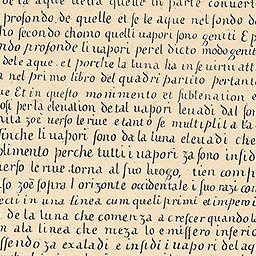 de la aque della quelle in parte convert
profondo de quelle et se le aque nel fondo d
ho secondo chomo quelli uapori sono geniti E p
ndo profonde li uapori per el dicto modo genit
dele aque. et porche la luna ha in se uirtu att
a nel primo libro del quadri partito pertant
ue Et in questo monimento et sublenation e
osi per la eleuation de tal uapori leuadi dal son
uita zoe uerso le riue e tanto se multipli ta la
finche li uapori sono da la luna eleuadi che
plimento perche tutti i uapori za sono in sid
uerso le riue torna al suo luogo, tien comp
so zoe sopra l orizonte occidentale i suo razi con
ecti in una linea cum queli primi et impero i
de la luna che comenza a crescer quando la
m ala linea che meza lo emissero inferio
ssendo za exaladi e insidi i uapori del aq